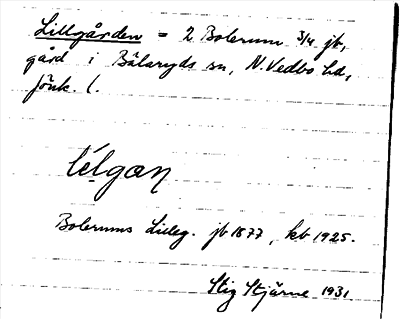 Lillgården = 2 Bolerum 3/4 jb,
gård i Bälaryds sn, N. Vedbo hd,
Jönk. l.
lélgan
Bolerums Lilleg. jb 1877, kb 1925.
Stig Stjärne 1931